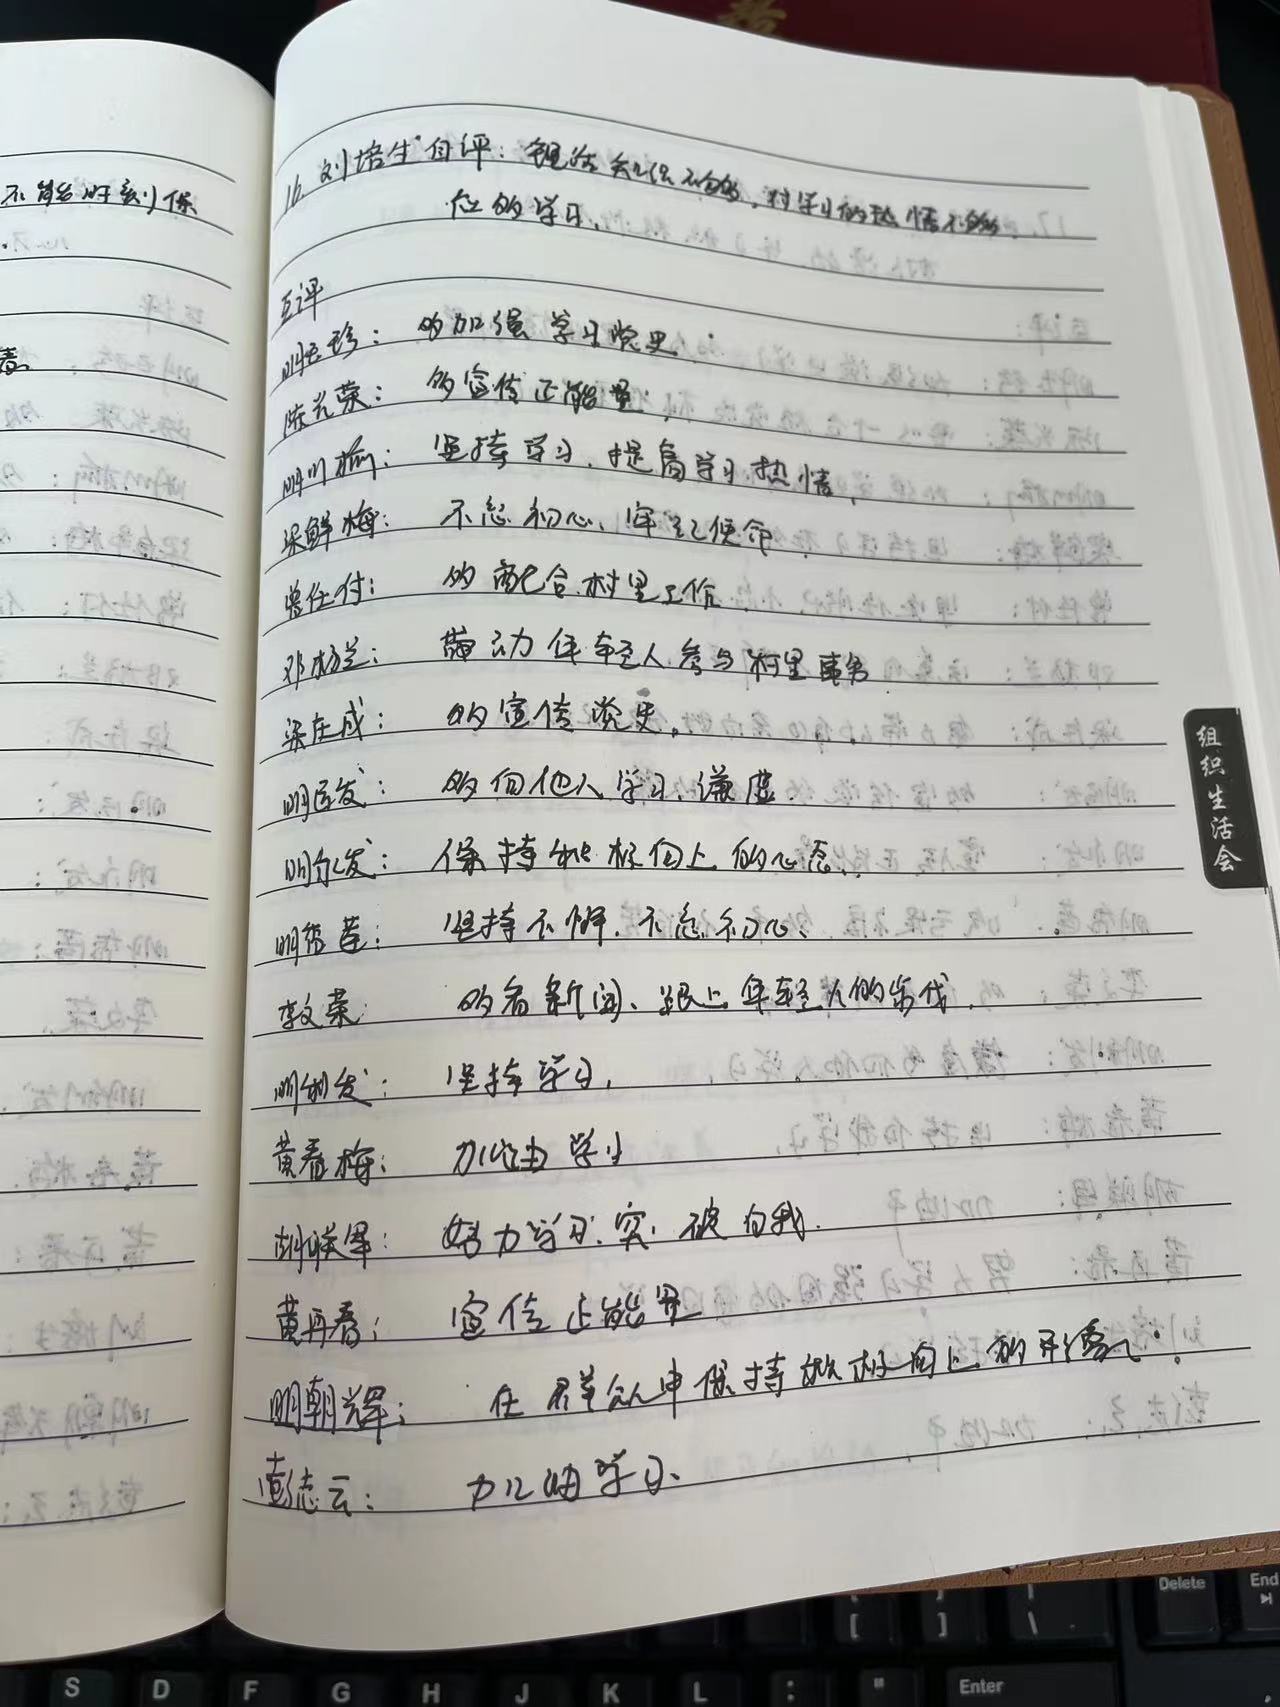 不能时刻保
16. 刘培生自评: 理论知识不够, 对学习的热情不够
应多学习.
互评
明玉珍: 多加强学习党史
陈兰荣: 多宣传正能量
明川榆: 坚持学习, 提高学习热情
梁鲜梅: 不忘初心、牢记使命
曾任付: 多配合村里工作
邓杨兰: 带动年轻人参与村里事务
梁在成: 多宣传党史.
明医发: 多向他人学习、谦虚.
明永发: 保持积极向上的心态.
明哲莲: 坚持不懈, 不忘初心、
李文荣: 多看新闻、跟上年轻人的步伐.
明利发: 坚持学习,
黄春梅: 加油学习
胡联军: 努力学习、突破自我.
黄再春: 宣传正能量
明朝辉: 在群众中保持积极向上的形象.
彭志云: 加油学习、
组织生活会
Delete
End
Enter
S D F G H J K L